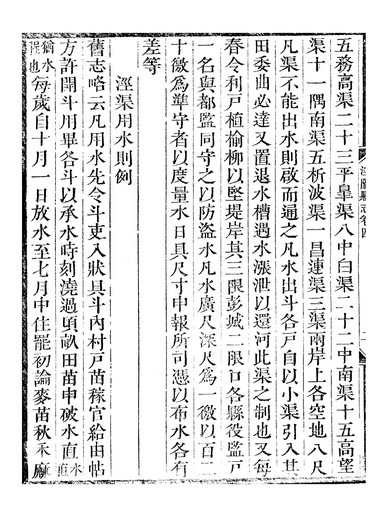 五務高渠二十三平皐渠八中白渠二十二中南渠十五高望
渠十一隅南渠五析波渠一昌連渠三渠兩岸上各空地八尺
凡渠不能出水則啟而通之凡水出斗各戶自以小渠引入其
田委曲必達又置退水槽遇水漲泄以還河此渠之制也又每
春令利戶植榆柳以堅堤岸其三限彭城二限口各縣役監戶
一名與都監同守之以防盜水凡水廣尺深尺為一徼以百二
十徼為準守者以度量水日具尺寸申報所司憑以布水各有
差等
涇渠用水則例
舊志略云凡用水先令斗吏入狀具斗內村戶苗稼官給由帖
方許開斗用畢各斗以承水時刻澆過頃畝田苗申破水直水直
猶水
程也每歲自十月一日放水至七月中住罷初論麥苗秋禾